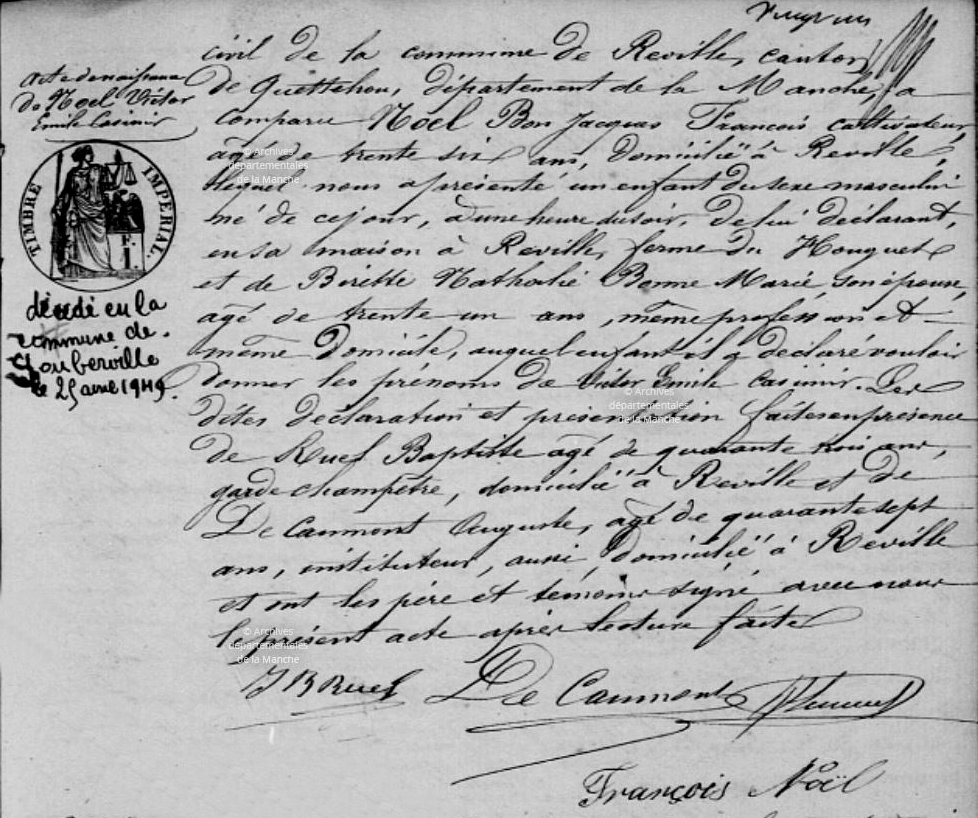 civil de la commune de Reville, canton
de Quettehou, département de la Manche, a
comparu Noël Bon Jacques François cultivateur,
âgé de trente six ans, domicilié à Reville,
lequel nous a présenté un enfant du sexe masculin
né de ce jour, à une heure du soir, de lui déclarant,
en sa maison à Reville, ferme du Houguet
et de Birette Nathalie Bonne Marie, son épouse,
agé de trente un ans, même profession et
même domicile, auquel enfant il a déclaré vouloir
donner les prénoms de Victor Emile Casimir. Les
dites déclaration et présentation faites en présence
de Ruel Baptiste agé de quarante trois ans,
garde champêtre, domicilié à Reville et de
De Caumont Auguste, agé de quarante sept
ans, instituteur, aussi domicilié à Reville
et ont les père et témoins signé avec nous
le présent acte après lecture faite
J B Ruel De Caumont
François Noël
acte de naissance
de Noel Victor
Emile Casimir
TIMBRE IMPERIAL.
décédé en la
commune de
le 25 1949.
© Archives
départementales
de la Manche
© Archives
départementales
de la Manche
© Archives
départementales
de la Manche